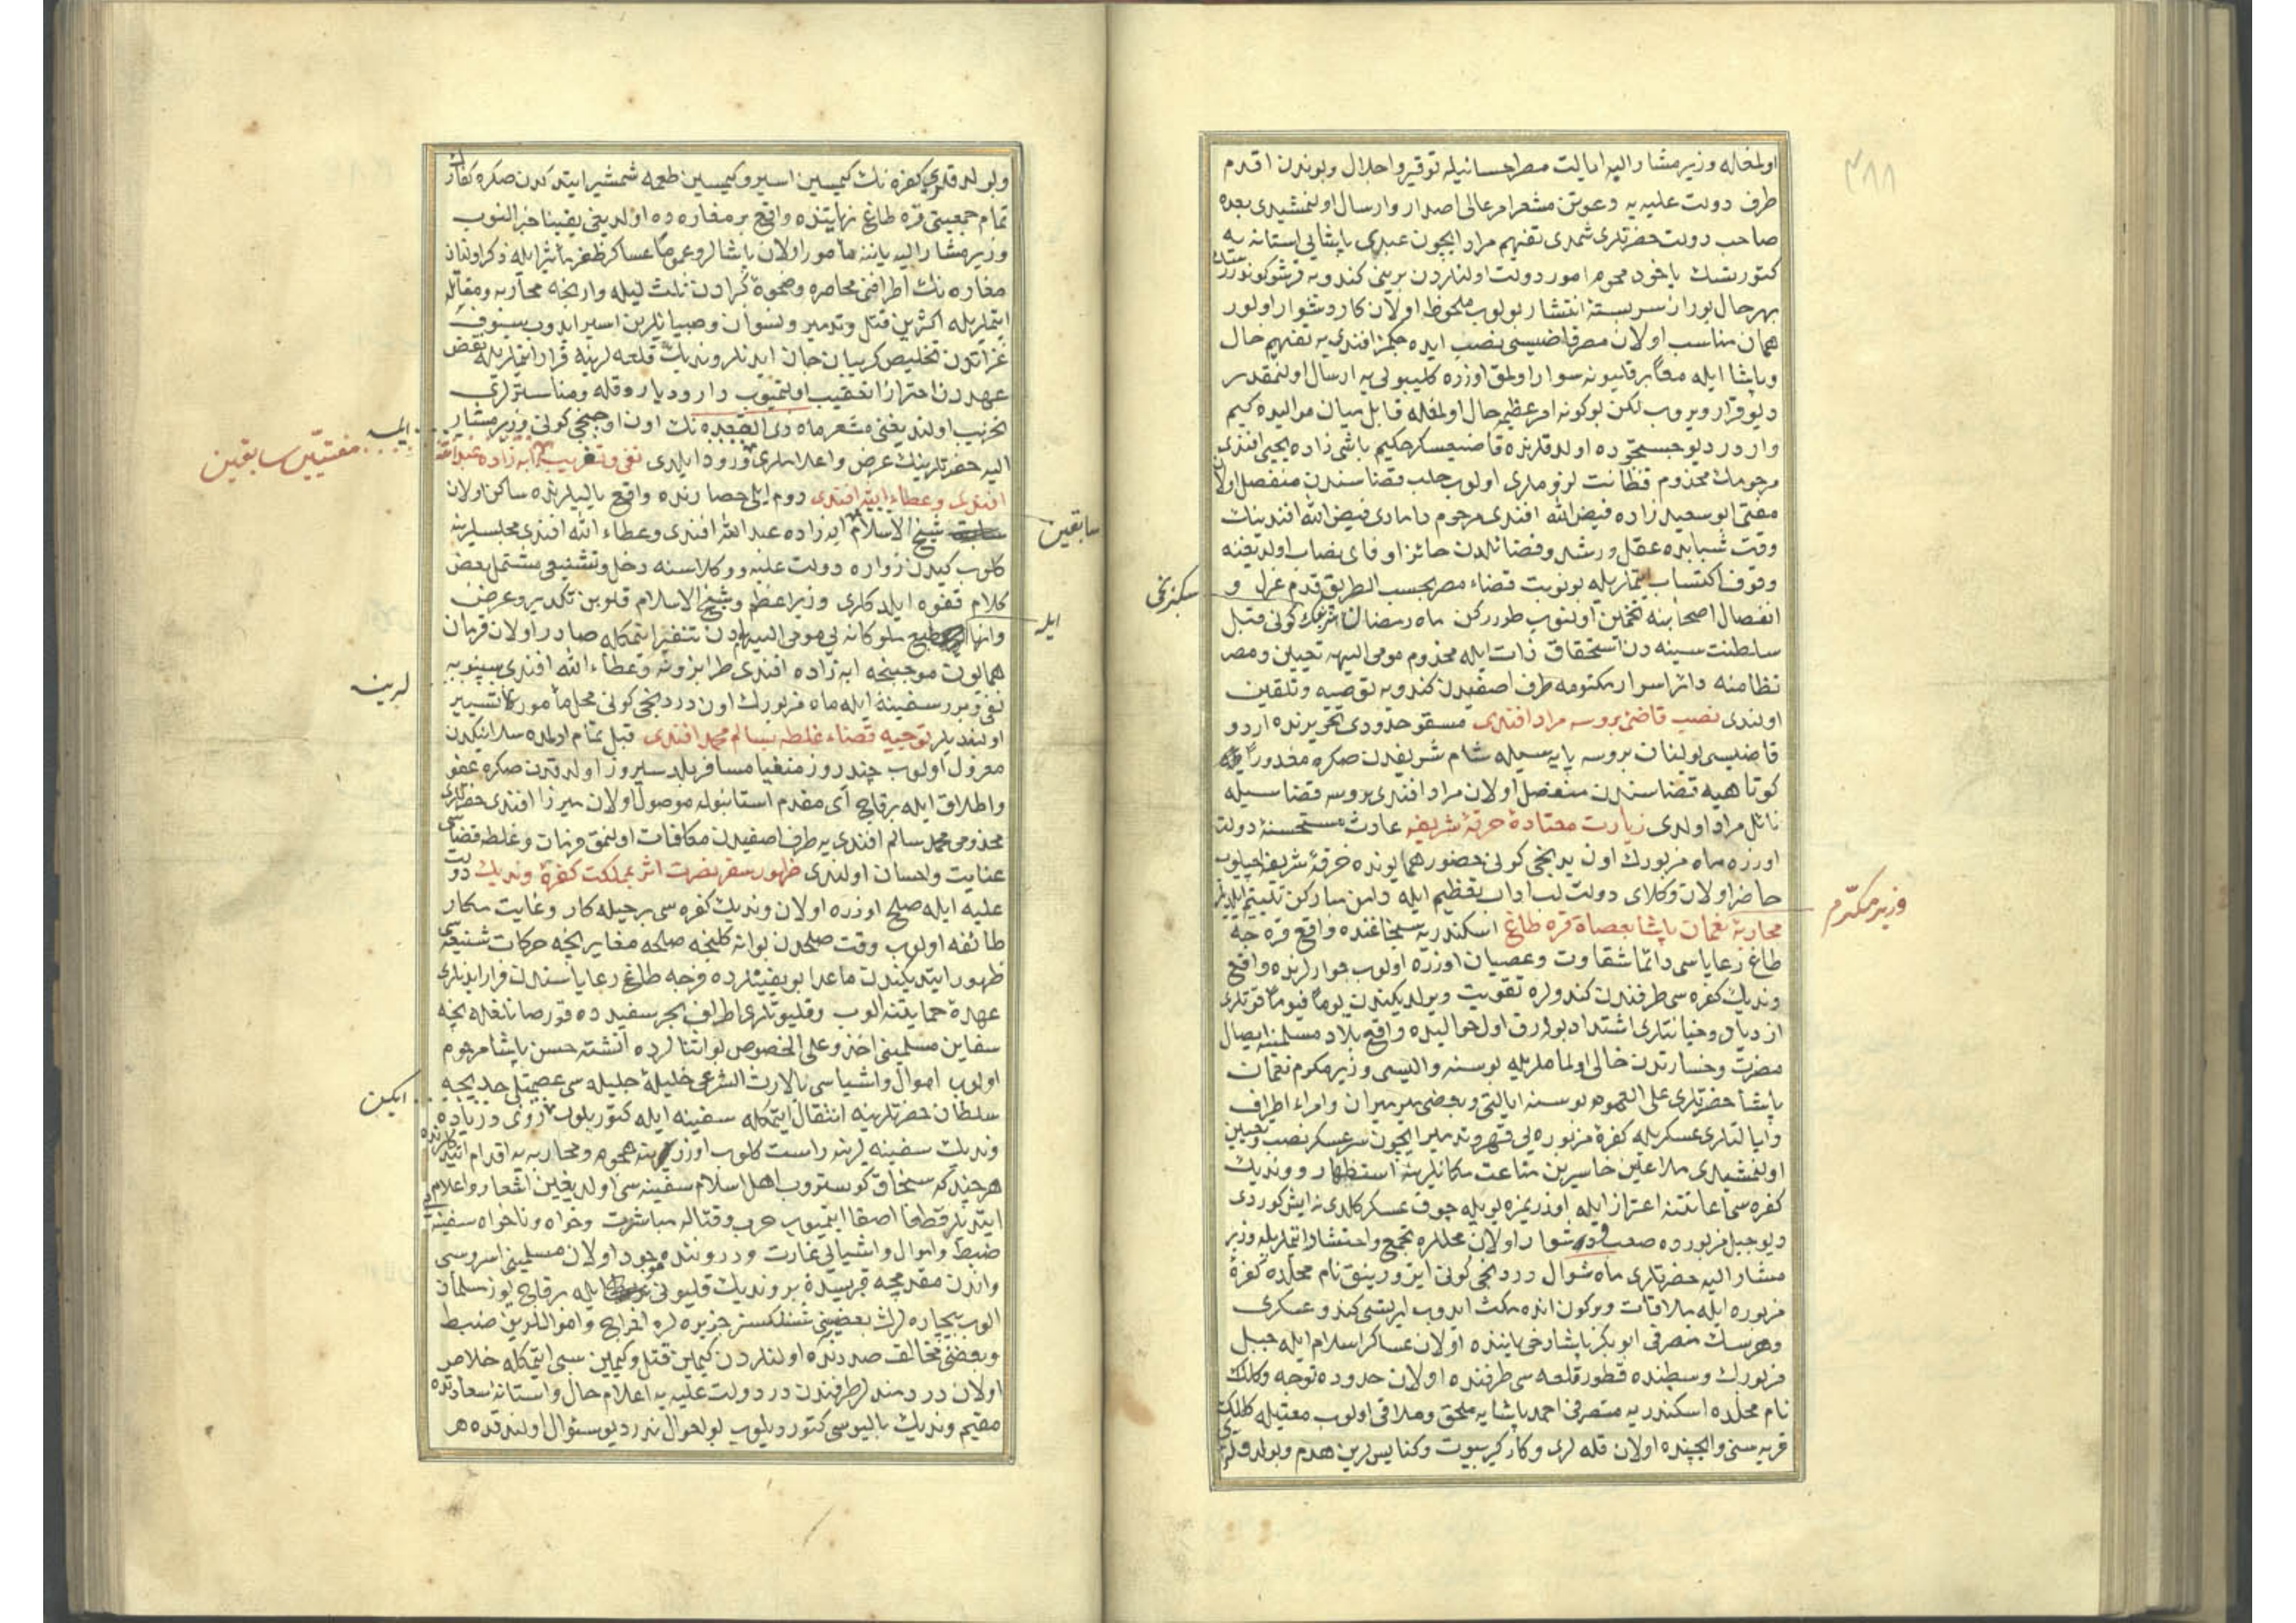 ٣٨٨
اولمغله وزیر مشار الیه ایالت مصر احسانیله توقیر و اجلال و بوندن اقدم
طرف دولت علیه یه دعوتن مشعر امر عالی اصدار و ارسال اولنمشیدی بعده
صاحب دولت حضرتلری شمدی تفهیم مراد ایچون عبدی پاشایی استانه یه
کتورتسك یاخود محرم امور دولت اولنلردن برینی کندویه قرشو کوندرسك
بهرحال بو راز سربسته انتشار بولوب ملحوظ اولان کار دشوار اولور
همان مناسب اولان مصر قاضیسی نصب ایده جکمز افندی یه تفهیم حال
و پاشا ایله معاً بر قلیونه سوار اولمق اوزره کلیبولی یه ارسال اولنمقدر
دیو قرار ویروب لکن بو کونه امر عظیم حال اولمغله قابل میان موالیده کیم
واردر دیو جستجوده اولدقلرنده قاضیعسکر حکیم باشی زاده یحیی افندی
مرحومك مخدوم فطانت لزوملری اولوب حلب قضاسندن منفصل اولان
مفتی ابو سعید زاده فیض الله افندی مرحوم دامادی فیض الله افندینك
وقت شبابنده عقل و رشد و فضائلدن حائز اوفای نصاب اولدیغنه
وقوف اکتساب ایتملریله بو نوبت قضاء مصر بحسب الطریق قدم عزل و
انفصال اصحابنه تخمین اولنوب طوررکن ماه رمضان شریفك کونی قبل
سکزنجی
سلطنت سنیه دن استحقاق ذات ایله مخدوم مومی الیهه تعیین و مصر
نظامنه دائر اسرار مکتومه طرف اصفیدن کندویه توصیه و تلقین
اولندی نصب قاضی بروسه مراد افندی مسقو حدودی تحریرنده اردو
قاضیسی بولنان بروسه پایه سیله شام شریفدن صکره مغدوراً
کوتاهیه قضاسندن منفصل اولان مراد افندی بروسه قضاسیله
نائل مراد اولدی زیارت معتادۀ خرقۀ شریفه عادت مستحسنۀ دولت
اوزره ماه مزبورك اون یدنجی کونی حضور همایونده خرقۀ شریفه اچیلوب
حاضر اولان وکلای دولت لب اداب تعظیم ایله دامن مبارکن تلثیم ایلدیلر
محاربۀ نعمان پاشا بعصاة قره طاغ اسکندریه سنجاغنده واقع قره جه
وزیر مکرّم
طاغ رعایاسی دائما شقاوت و عصیان اوزره اولوب جوارلرنده واقع
وندیك کفره سی طرفندن کندولره تقویت ویرلدیکندن یوماً فیوماً قوتلری
ازدیاد و خیانتلری اشتداد بولەرق اول حوالیده واقع بلاد مسلمینه ایصال
مضرت و خسارتدن خالی اولماملریله بوسنه والیسی وزیر مکرم نعمان
پاشا حضرتلری علی العموم بوسنه ایالتی و بعضی میرمیران و امراء اطراف
و ایالتلری عسکریله کفرۀ مزبوره یی قهر و تدمیر ایچون سرعسکر نصب و تعیین
اولنمشیدی ملاعین خاسرین مناعت مکانلرینه استظهار و وندیك
کفره سی اعانتنه اعتزاز ایله اوزریمزه بویله چوق عسکر کلدی نه ایش کوردی
دیو جبل مزبورده صعب و دشوار اولان محللره تجمع و احتشاد ایتملریله وزیر
مشار الیه حضرتلری ماه شوال دردنجی کونی ایزورنیق نام محلده کفرۀ
مزبوره ایله ملاقات و برکون انده مکث ایدوب ایرتسی کندو عسکری
و هرسك متصرفی ابو بکر پاشا دخی یاننده اولان عساکر اسلام ایله جبل
مزبورك وسطنده قطور قلعه سی طرفنده اولان حدوده توجه و کلك
نام محلده اسکندریه متصرفی احمد پاشایه ملحق و ملاقی اولوب معیتیله کلك
قریه سنی و ایچنده اولان قله لری و کارکیر بیوت و کنایسلرین هدم و بولدقلری
و بولدقلری کفره نك کیمسین اسیر و کیمسین طعمه شمشیر ایتدکدن صکره کفارك
تمام جمعیتی قره طاغ نهایتنده واقع بر مغاره ده اولدیغی یقینا خبر النوب
وزیر مشار الیه یاننه مأمور اولان پاشالر و عموماً عساکر ظفر مأثر ایله ذکر اولنان
مغاره نك اطرافنی محاصره و ضحوۀ کبرادن ثلث لیله وارنجه محاربه و مقاتله
ایتملریله اکثرین قتل و تدمیر و نسوان و صبیانلرین اسیر ایدوب سیوف
غزاتدن تخلیص کریبان جان ایدنلر وندیك قلعه لرینه فرار ایتملریله نقض
عهددن احترازا تعقیب اولنمیوب دار و دیار و قله و مناسترلری
تخریب اولندیغنی مشعر ماه ذی القعده نك اون اوچنجی کونی وزیر مشار
الیه حضرتلرینك عرض و اعلاملری ورود ایلدی نفی و تغریب ابه زاده عبد الله
ایله
مفتیّین سابقین
افندی و عطاء الله افندی روم ایلی حصارنده واقع یالیلرنده ساکن اولان
شیخ الاسلام ابه زاده عبد الله افندی و عطاء الله افندی مجلسلرینه
سابقین
کلوب کیدن زواره دولت علیه و وکلاسنه دخل و تشنیعی مشتمل بعض
کلام تفوه ایلدکلری وزیر اعظم و شیخ الاسلام قلوبن تکدیر و عرض
و انها طبع ملوکانه یی مومی الیهمادن تنفیر ایتمکله صادر اولان فرمان
ایله
همایون موجبنجه ابه زاده افندی طرابزونه و عطاء الله افندی سینوبه
نفی و برر سفینه ایله ماه مزبورك اون دردنجی کونی محل مأمورلرینه تسییر
لرینه
اولندیلر توجیه قضاء غلطه بسالم محمد افندی قبل تمام اولمده سلانیکدن
معزول اولوب چند روز منفیا مسافر بلد سیروز اولدقدن صکره عفو
و اطلاق ایله برقاچ آی مقدم استانبوله موصول اولان میرزا افندی حضرتلری
مخدومی محمد سالم افندی یه طرف اصفیدن مکافات اولنمق فرمان و غلطه قضاسی
عنایت و احسان اولندی ظهور سفر نصرت اثر بمملکت کفرۀ وندیك دولت
علیه ایله صلح اوزره اولان وندیك کفره سی بر حیله کار و غایت مکار
طائفه اولوب وقت صلحدن بو انه کلنجه صلحه مغایر نیجه حرکات شنیعه سی
ظهور ایتدیکندن ماعدا بو بقیتلرده قرجه طاغ رعایاسندن فرار ایدنلری
عهدۀ حمایتنه الوب و قلیونلری اطراف بحر سفیدده قورصانلغله نیجه
سفاین مسلمینی اخذ و علی الخصوص بو اثنالرده انشته حسن پاشا مرحوم
اولوب اموال و اشیاسی بالارث الشرعی حلیلۀ جلیله سی عصمتلی خدیجه
سلطان حضرتلرینه انتقال ایتمکله سفینه ایله کتوریلوب روی دریاده
ایکن
وندیك سفینه لرینه راست کلوب اوزرینه هجوم و محاربه یه اقدام ایتدکلرنده
هر چند که سنجاق کوستروب اهل اسلام سفینه سی اولدیغین اشعار و اعلام
ایتدیلر قطعا اصغا ایتمیوب حرب و قتاله مباشرت و خواه و ناخواه سفینه یی
ضبط و اموال و اشیایی غارت و دروننده موجود اولان مسلمینی اسر و سبی
و اندن مقدمجه قبرسده بر وندیك قلیونی ایله برقاچ یوز مسلمان
الوب بیچاره لرك بعضینی شنلکسز جزیره لره اخراج و اموالرین ضبط
و بعضی مخالفت صددنده اولنلردن کیمین قتل و کیمین سبی ایتمکله خلاص
اولان دردمندلر طرفندن در دولت علیه یه اعلام حال و استانۀ سعادتده
مقیم وندیك بالیوسی کتوردیلوب بو احوال ندر دیو سؤال اولندقده هر